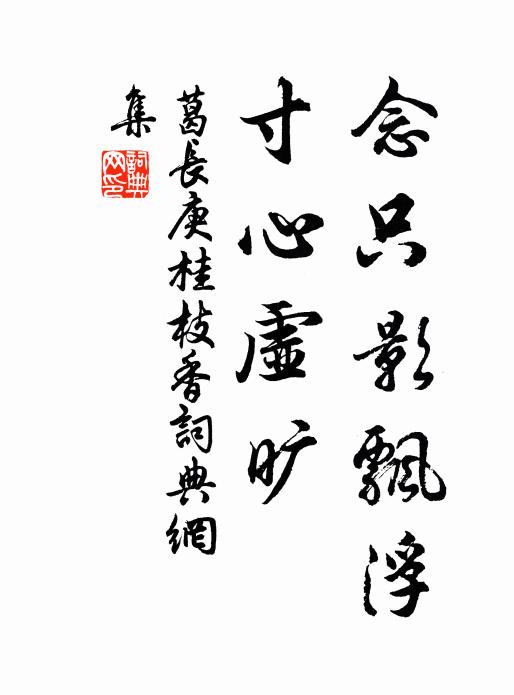 念只影飄浮
寸心虛旷
葛長庚桂枝香詞典網
集
詞典
网印